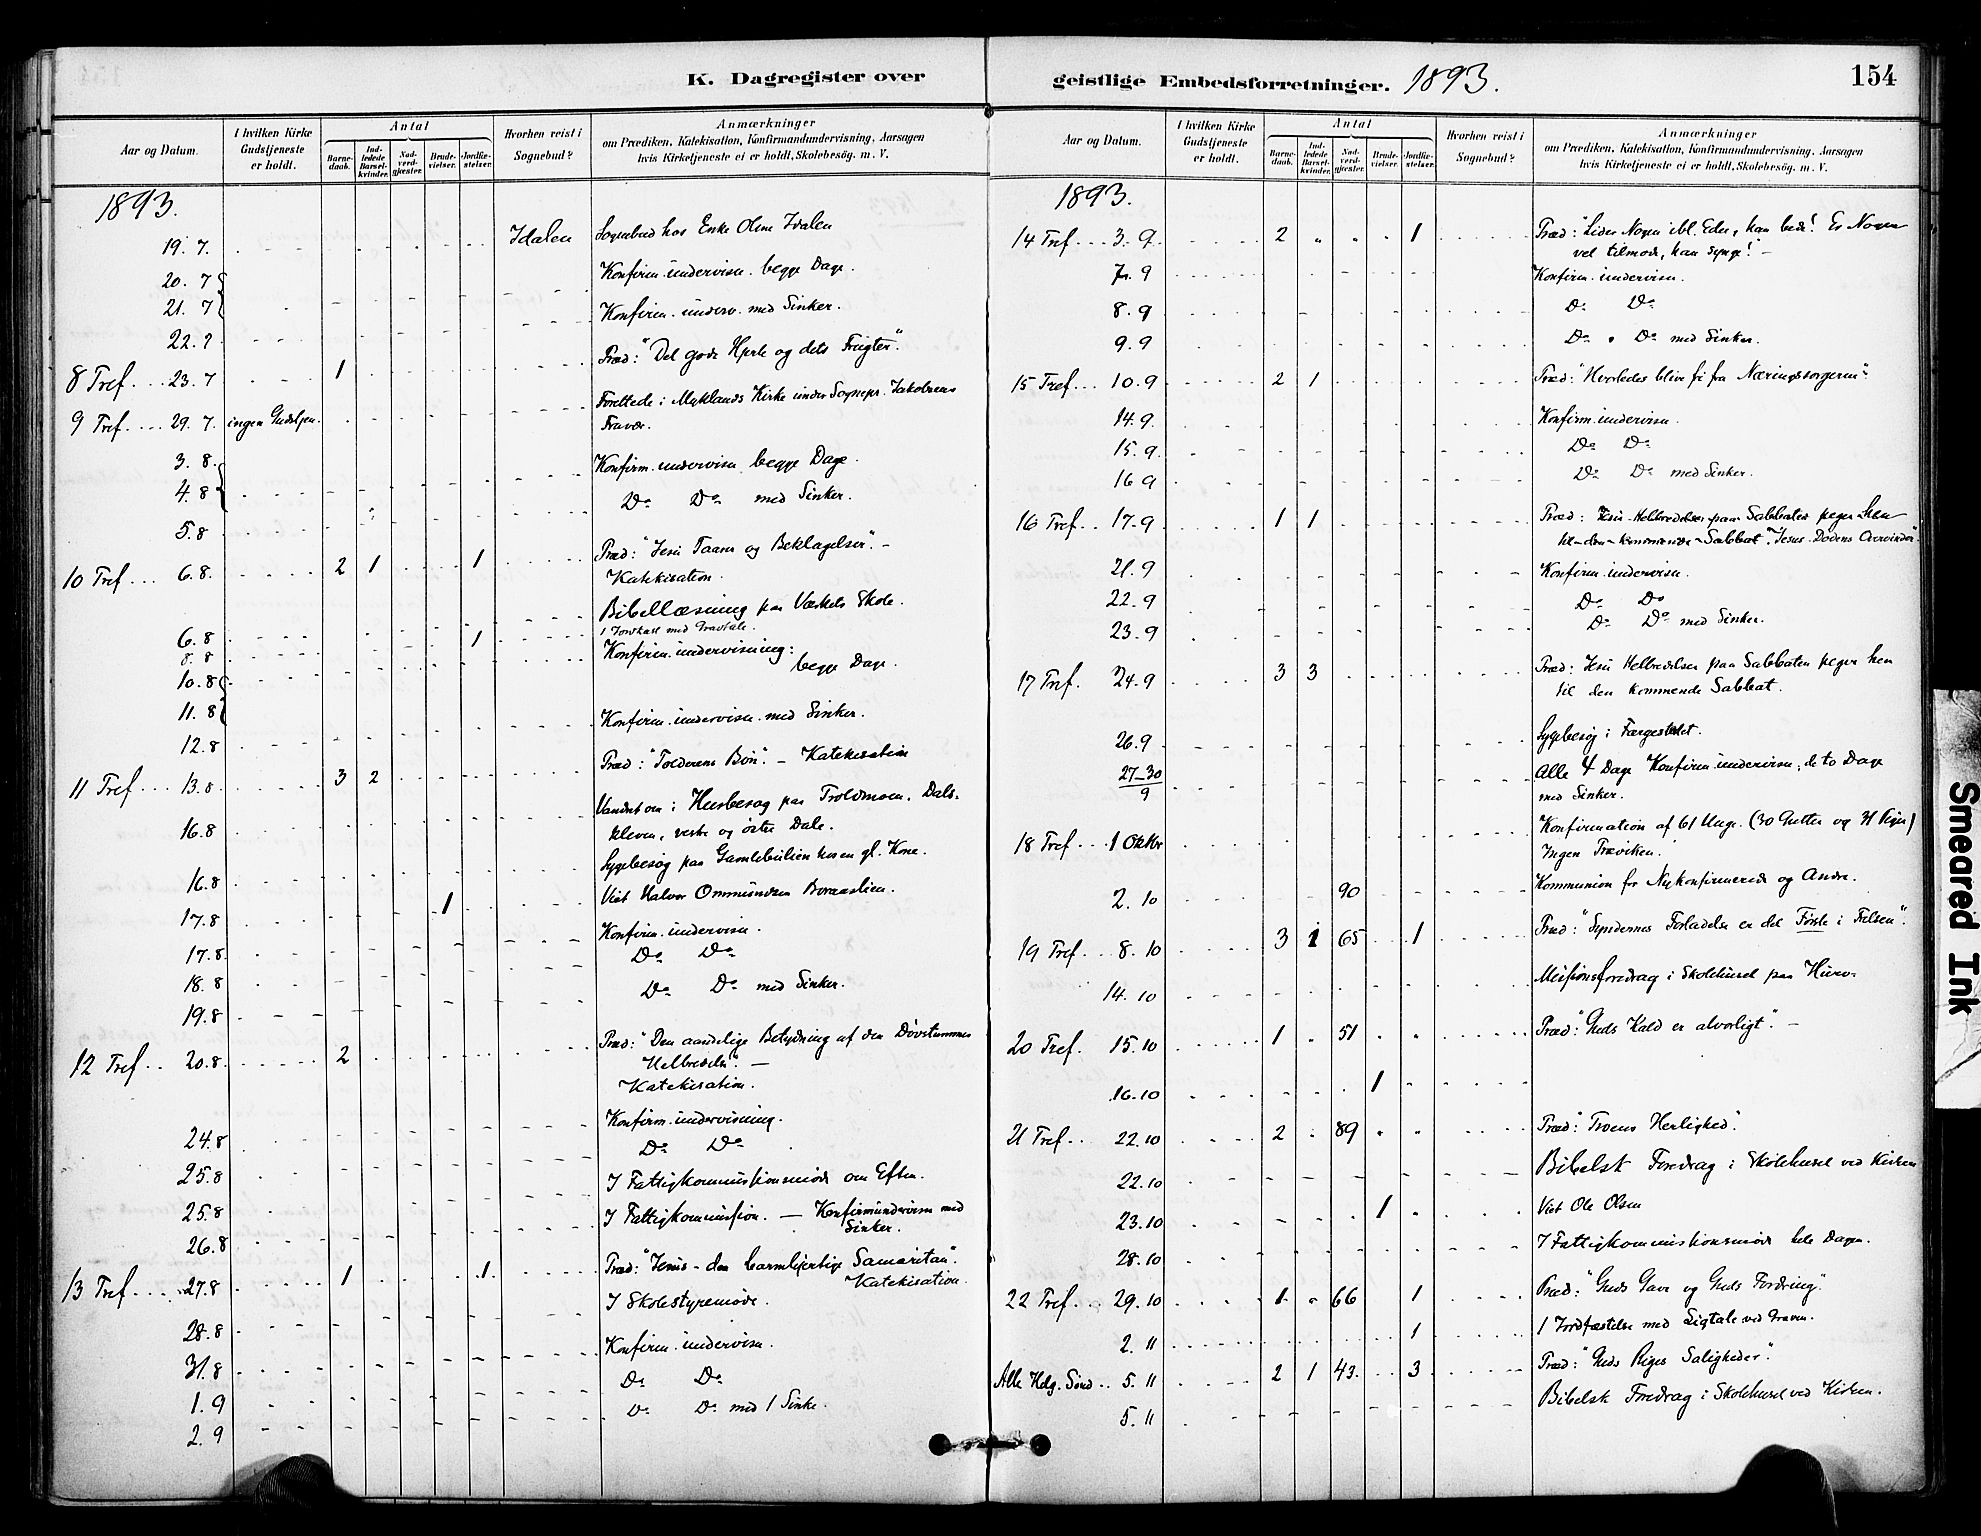 K. Dagregister over
Aar og Datum.
I hvilken Kirke Gudstjeneste er holdt.
Antal
Barne-daab.
Ind-ledede Barsel-kvinder.
Nad-verd-gjæster.
Brude-vielser.
Jordfæ-stelser.
Hvorhen reist i Sognebud?
Anmærkninger
om Prædiken, Katekisation, Konfirmandundervisning, Aarsagen
hvis Kirketjeneste ei er holdt, Skolebesög. m. V.
1893.
19. 7. Idalen Sognebud hos Enke Olene Idalen
20. 7 Konfirm. undervisn. begge Dage.
21. 7
22. 7 Konfirm. underv. med Sinker.
8 Tref. 23. 7 1 Præd: "Det gode Hjerte og dets Frugter".
9 Tref. 29. 7. ingen Gudstjen. Forettede i Myklands Kirke under Sognepr. Jakobsens
Fravær.
3. 8. Konfirm. undervisn. begge Dage.
4. 8
5. 8 Do Do med Sinker.
10 Tref. 6. 8. 2 1 1 Præd: "Jesu Taarer og Beklagelser". -
Katekisation.
6. 8 Bibellæsning paa Værkets Skole.
8. 8 1 1 Jordkast med Gravtale.
10. 8 Konfirm. undervisning:
begge Dage.
11. 8
12. 8 Konfirm. undervisn. med Sinker.
11 Tref. 13. 8. 3 2 Præd: "Tolderens Bön". - Katekisation
16. 8 Vandret om i Husbesøg paa Troldmoen, Dals-
kleven, vestre og östre Dale.
16. 8 Sygebesøg paa hos en gl. Kone.
17. 8 1 Viet Halvor Ommundsen Boraaslien.
17. 8. Konfirm. undervisn.
18. 8 Do Do
19. 8 Do Do med Sinker.
12 Tref. 20. 8. 2 Præd: "Den aandelige Betydning af den Døvstummes
Helbredelse". -
Katekisation.
24. 8 Konfirm. undervisning.
25. 8 Do Do
25. 8 I Fattigkommissionsmøde om Eften.
26. 8 I Fattigkommission. - Konfirmundervisn med
Sinker.
13 Tref. 27. 8 1 1 Præd: "Jesus - den barmhjertige Samaritan".
Katekisation.
28. 8 I Skolestyremøde.
31. 8 Konfirm. undervisn.
1. 9 Do Do
2. 9 Do Do med 1 Sinke.
geistlige Embedsforretninger. 1893.
154
Aar og Datum.
I hvilken Kirke Gudstjeneste er holdt.
Antal
Barne-daab.
Ind-ledede Barsel-kvinder.
Nad-verd-gjæster.
Brude-vielser.
Jordfæ-stelser.
Hvorhen reist i Sognebud?
Anmærkninger
om Prædiken, Katekisation, Konfirmandundervisning, Aarsagen
hvis Kirketjeneste ei er holdt, Skolebesög. m. V.
1893.
14 Tref. 3. 9. 2 " " " 1 Præd: "Lider Nogen ibl. Eder, han bede! Er Nogen
vel tilmode, han synge!" -
7. 9 Konfirm. undervisn.
8. 9 Do Do
9. 9 Do " Do med Sinker.
15 Tref. 10. 9 2 1 Præd: "Hvorledes blive fri fra Næringssorgerne"
14. 9. Konfirm. undervisn.
15. 9 Do Do
16 9 Do Do med Sinker.
16 Tref. 17. 9 1 1 Præd: Jesu Helbredelser paa Sabbaten peger hen
til den kommende Sabbat. "Jesus Dødens Overvinder"
21. 9 Konfirm. undervisn.
22. 9 Do Do
23. 9 Do Do med Sinker.
17 Tref. 24. 9 3 3 Præd: Jesu Helbredelser paa Sabbaten peger hen
til den kommende Sabbat.
26. 9 Sygebesøg i
27-30/9 Alle 4 Dage Konfirm. undervisn; de to Dage
med Sinker.
18 Tref. 1 Oktbr Konfirmation af 61 Unge. (30 Gutter og 31 Piger)
Ingen
2. 10 90 Kommunion for Nykonfirmerede og Andre.
19 Tref. 8. 10 3 1 65 1 Præd: "Syndernes Forladelse er det Første i Frelsen".
14. 10 Missionsforedrag i Skolehuset paa
20 Tref. 15. 10 1 " 51 " " Præd: "Guds Kald er alvorligt". -
16. 10 1
21 Tref. 22. 10 2 " 89 " " Præd: "Troens Herlighed".
22. 10 Bibelsk Foredrag i Skolehuset ved Kirken
23. 10 1 " Viet Ole Olsen
28. 10 I Fattigkommissionsmøde hele Dagen.
22 Tref. 29. 10 1 " 66 1 Præd: "Guds Gave og Guds Fordring"
2. 11 1 1 Jordfæstelse med Ligtale ved Graven.
Alle Helg. Sønd. 5. 11 2 1 43. 3 Præd: "Guds Riges Saligheder".
5. 11 Bibelsk Foredrag i Skolehuset ved Kirken.
Smeared Ink